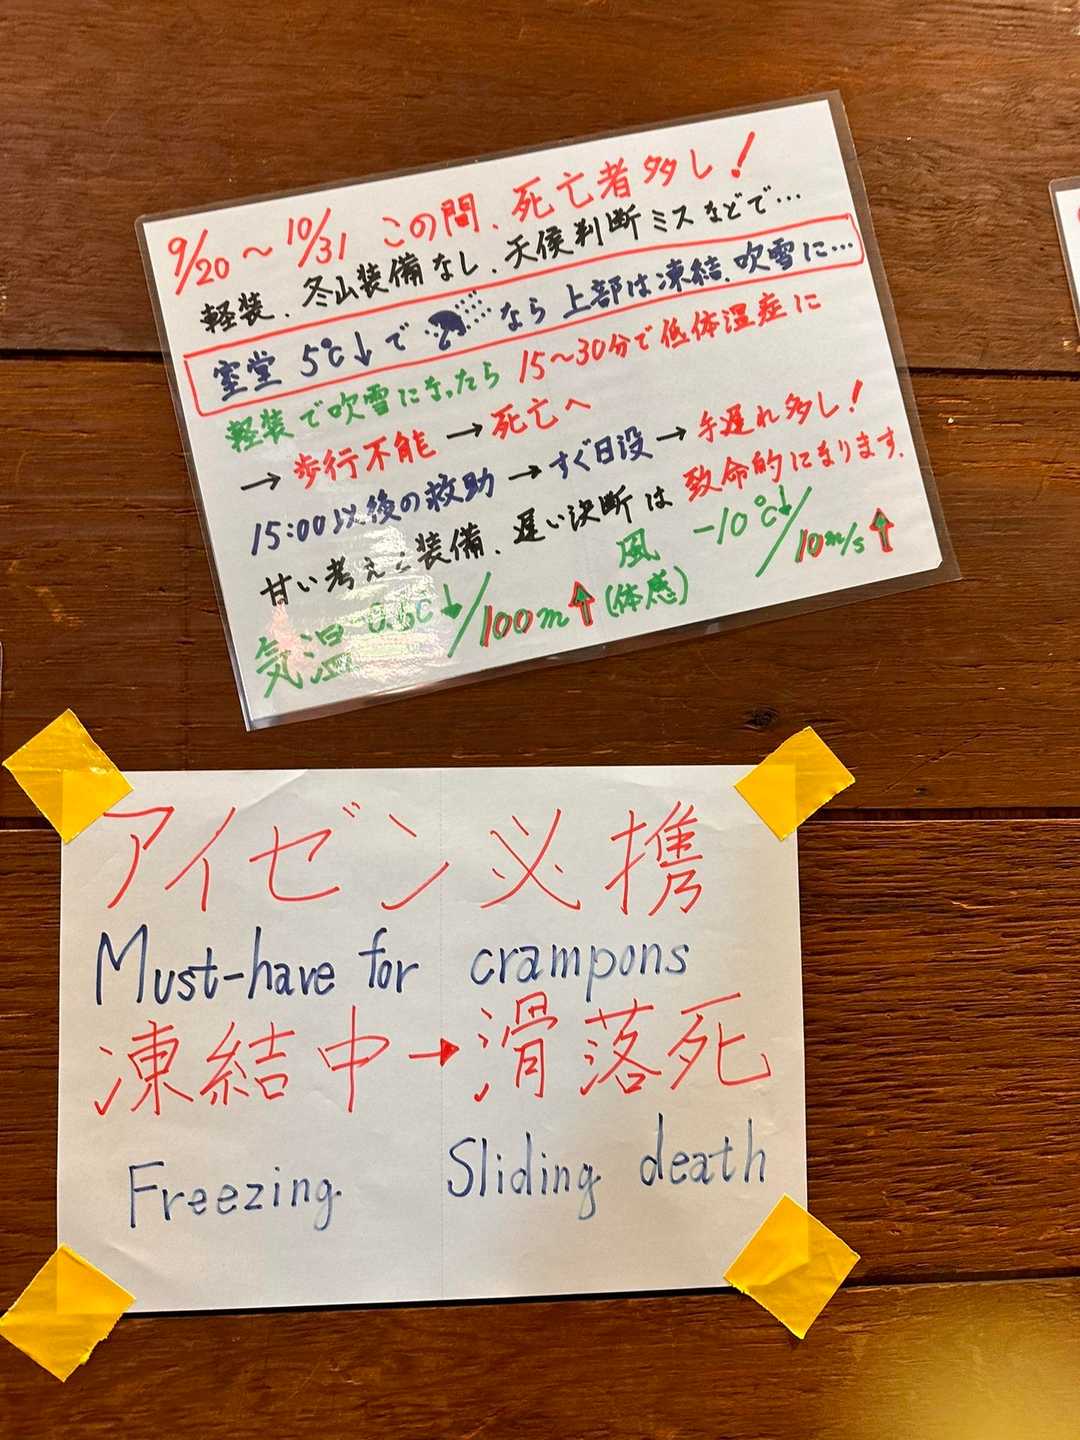 9/20 〜 10/31 この間、死亡者多し!
軽装、冬山装備なし、天候判断ミスなどで…
室堂 5℃↓で なら上部は凍結、吹雪に…
軽装で吹雪になったら 15〜30分で低体温症に
→ 歩行不能 → 死亡へ
15:00以後の救助 → すぐ日没 → 手遅れ多し!
甘い考えと装備、遅い決断は 致命的になります.
気温 -0.6℃↓/100m↑ 風(体感) -10℃↓/10m/s↑
アイゼン必携
Must-have for crampons
凍結中→滑落死
Freezing Sliding death